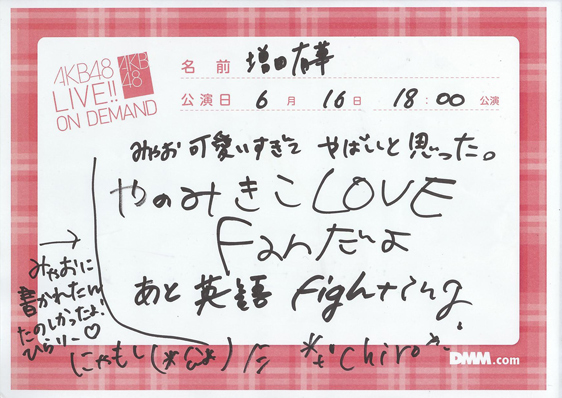 AKB48
LIVE!!
ON DEMAND
AKB
48
名前 増田有華
公演日 6月16日 18:00 公演
みゃお 可愛いすぎて やばいと思った。
やのみきこLOVE
Fanだよ
あと 英語 fighting
→
みゃおに
書かれたん
たのしかったよ!
ひらりー♡
にゃもし(*ω*)
chiro
DMM.com